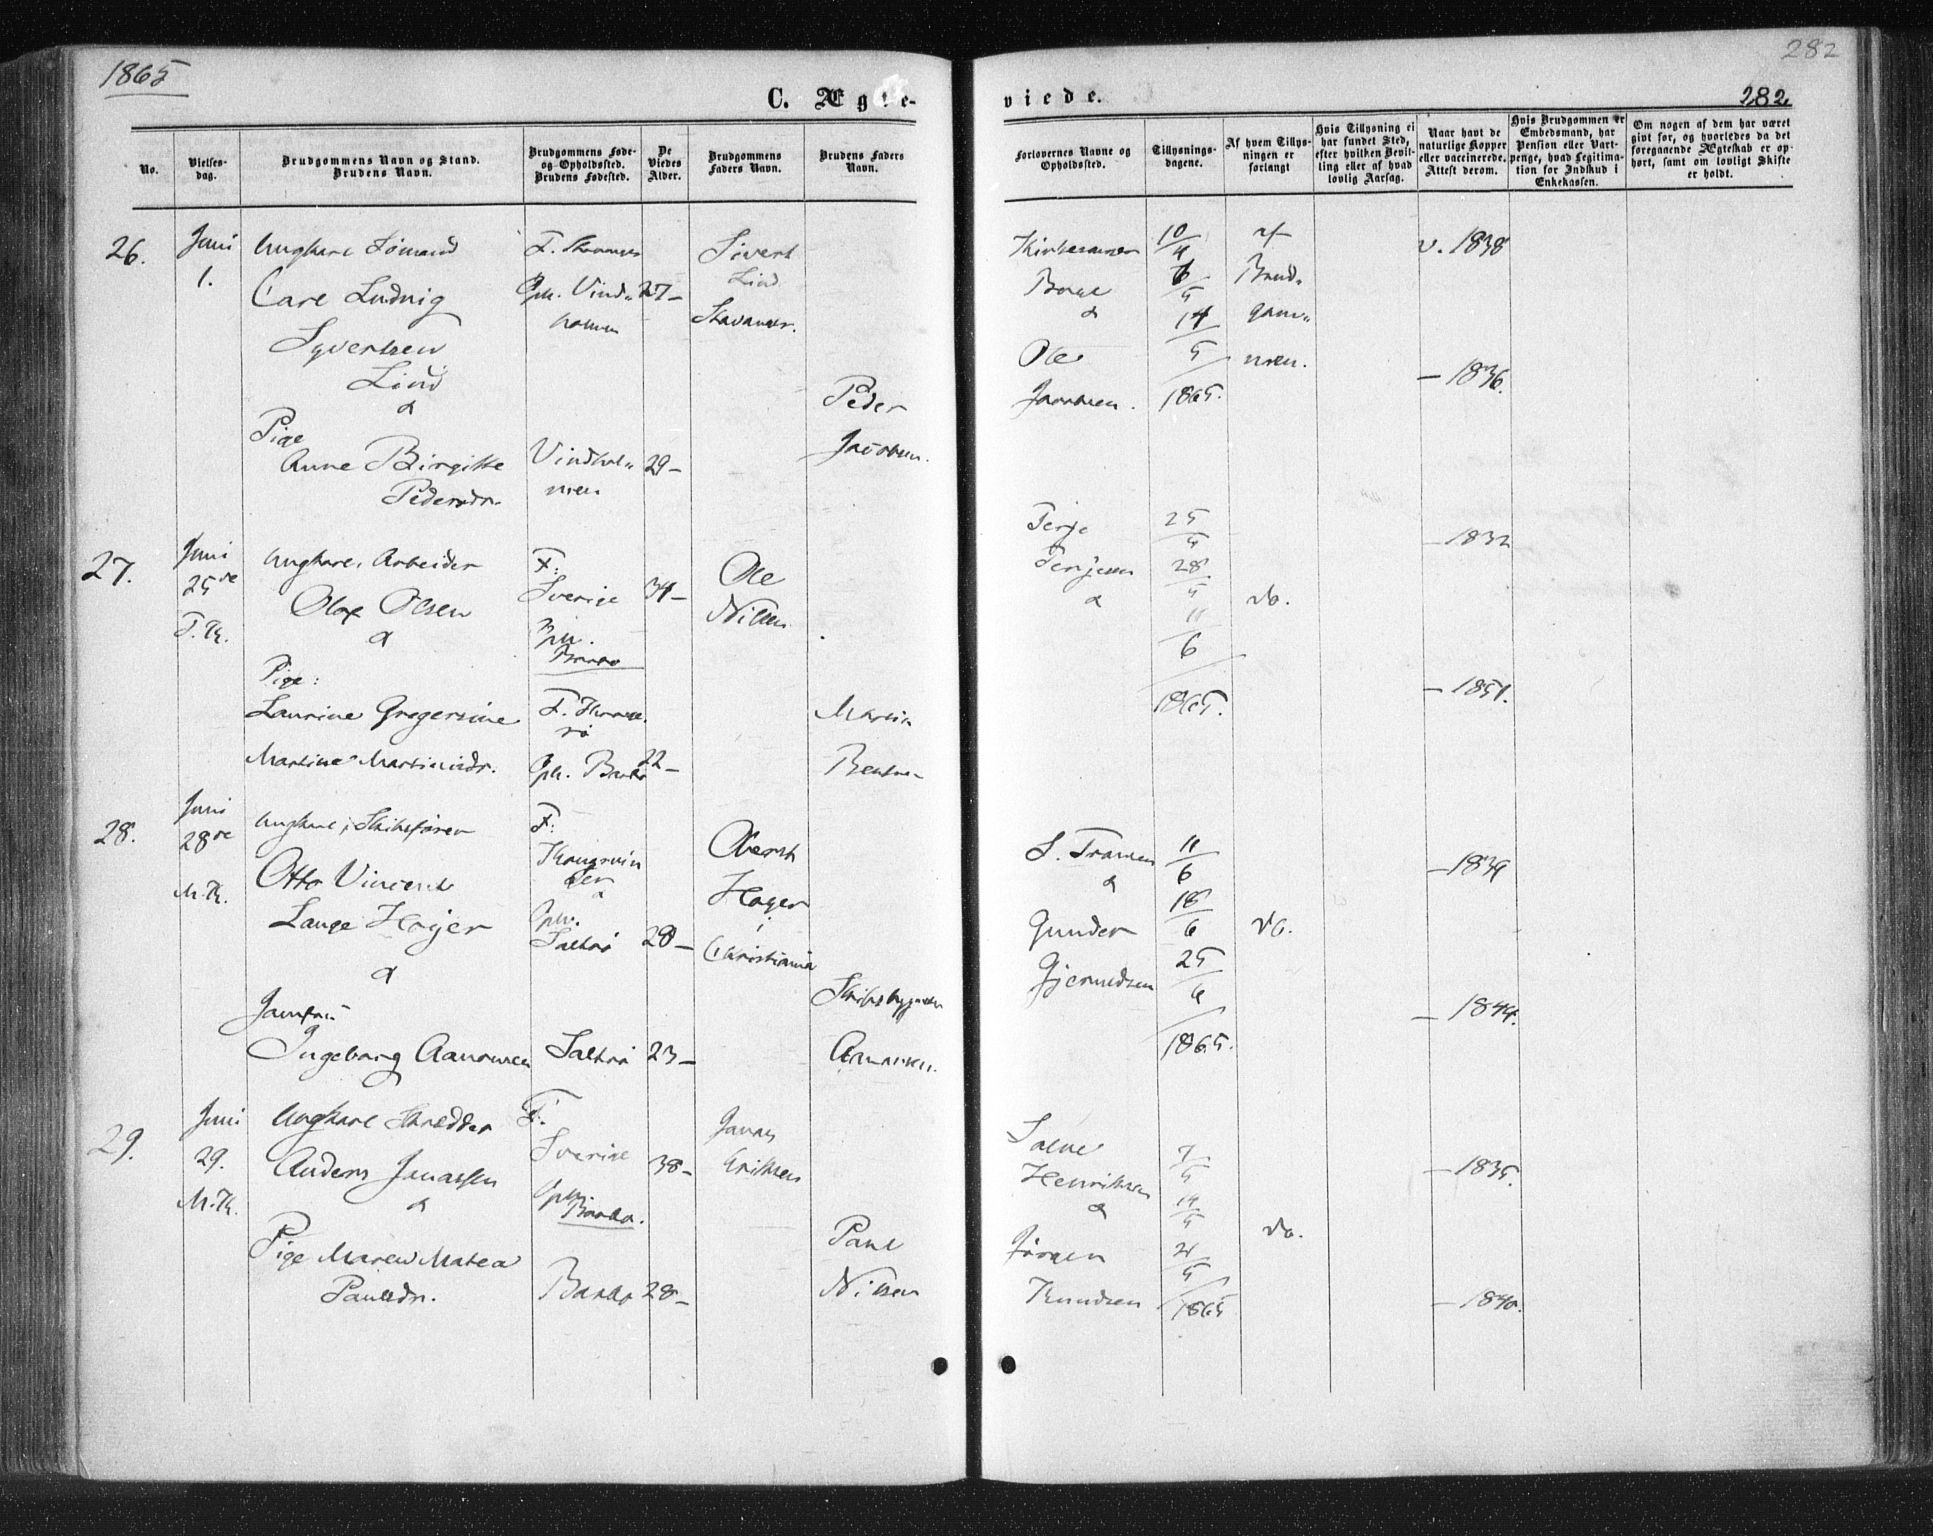 1865
282
C. Ægte-
viede.
282.
No.
Vielses-
dag.
Brudgommens Navn og Stand.
Brudens Navn.
Brudgommens Føde-
og Opholdssted.
Brudens Fødested.
De
Viedes
Alder.
Brudgommens
Faders Navn.
Brudens Faders
Navn.
Forlovernes Navne og
Opholdssted.
Tillysnings-
dagene.
Af hvem Tillys-
ningen er
forlangt
Hvis Tillysning ei
har fundet Sted,
efter hvilken Bevil-
ling eller af hvad
lovlig Aarsag.
Naar havt de
naturlige Kopper
eller vaccinerede.
Attest derom.
Hvis Brudgommen er
Embedsmand, har
Pension eller Vart-
penge, hvad Legitima-
tion for Indskud i
Enkekassen.
Om nogen af dem har været
gift før, og hvorledes da det
foregaaende Ægteskab er op-
hørt, samt om lovligt Skifte
er holdt.
26.
Juni
1.
Ungkarl Sømand
Carl Ludvig
Syvertsen
Lind
&
Pige
Anne Birgitte
Pedersdr.
Oph. Vind-
holmen
27-
Vindhol-
men
29-
Sivert
Lind
Peder
Jacobsen.
Ole
Jacobsen.
10/4
14/5
1865.
af
Brud-
gom-
men.
v. 1838
- 1836.
27.
Juni
25de
T. K.
Ungkarl, Arbeider
Olav Olsen
&
Pige:
Laurine Gregersine
Martine Martinsdr.
F:
Sverige
Oph.
Barbo
34-
Oph. Barbo
22-
Ole
Nilsen
Martin
Bentsen
Terje
Terjesen
&
28/5
11/6
1865.
do.
- 1832
- 1851.
28.
Juni
28de
M. K.
Ungkarl, Skibsfører
Otto Vincent
Lange Hoyer
&
Jomfru
Ingeborg Aanonsen
F:
Kongsvin
ger
&
Oph.
Saltrø
28-
Saltrø
23-
Oberst
Hoyer
i
Christiania
Skibsbygger
Aanonsen.
&
Gunder
Gjermundsen
11/6
18/6
25/6
1865.
do.
- 1839
- 1844.
29.
Juni
29.
M. K.
Ungkarl Skrædder
Anders Jonassen
&
Pige Maren Matea
Paulsdr.
F:
Sverige
Oph.
Barbo.
38-
Barbo
28-
Jonas
Eriksen
Paul
Nilsen
Salve
Henriksen
&
Jørgen
Knudsen
7/5
14/5
21/5
1865
do.
- 1835.
- 1840.